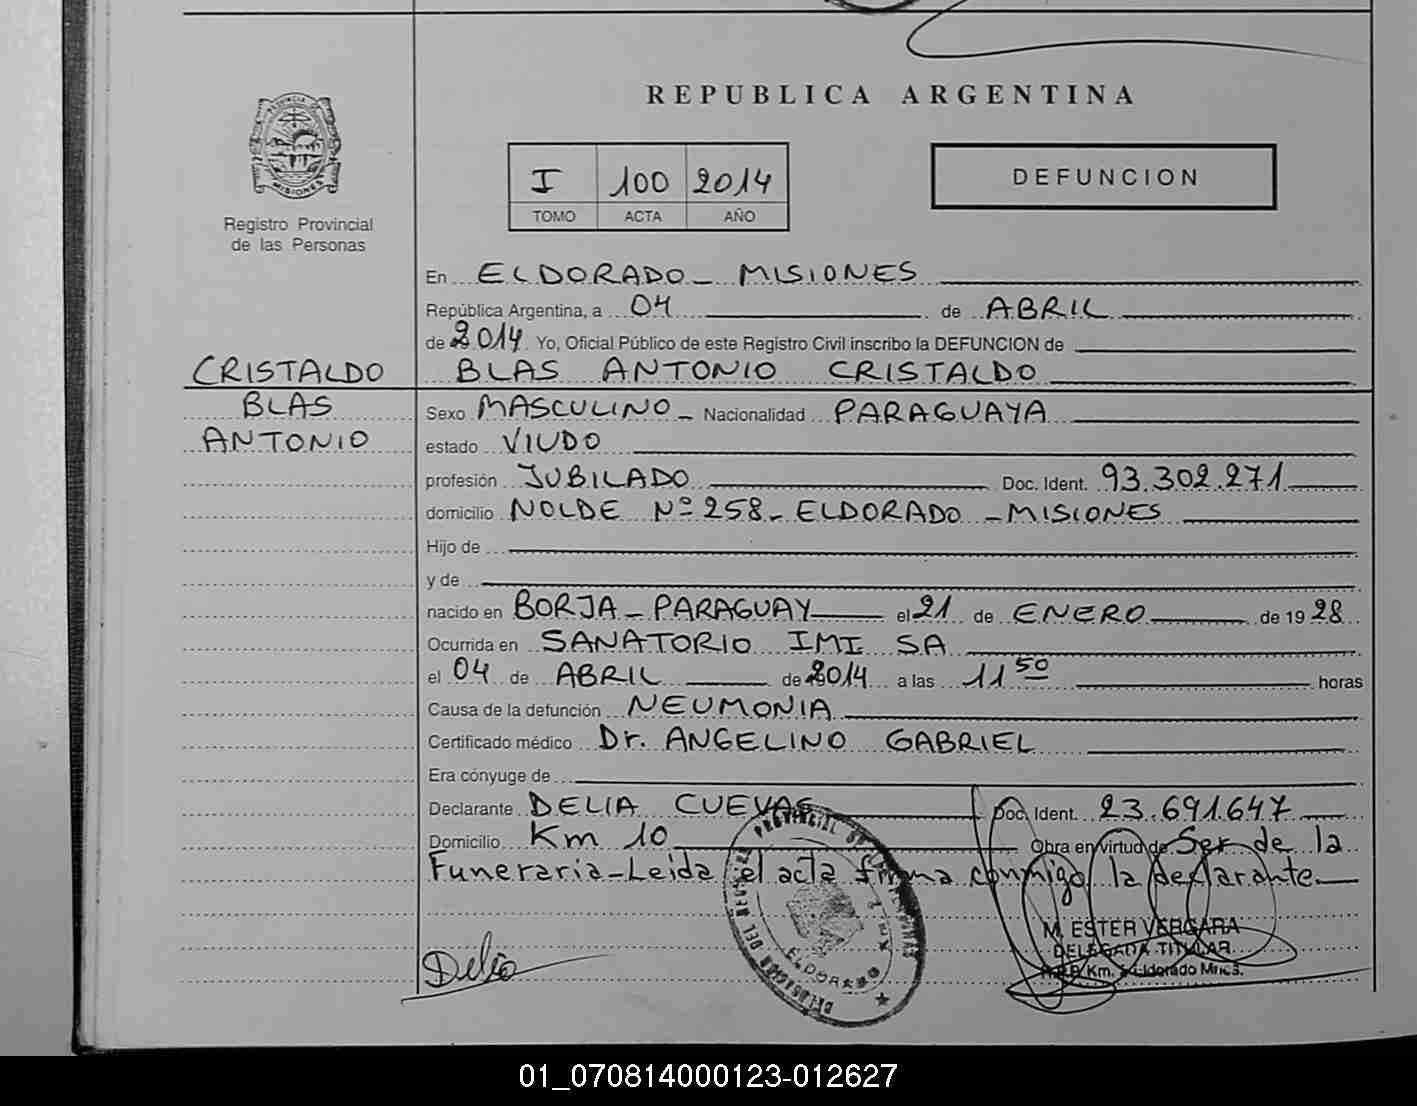 REPUBLICA ARGENTINA
PROVINCIA DE
MISIONES
Registro Provincial
de las Personas
I 100 2014
TOMO ACTA AÑO
DEFUNCION
En ELDORADO - MISIONES
República Argentina, a 04 de ABRIL
de 2014 Yo, Oficial Público de este Registro Civil inscribo la DEFUNCION de
CRISTALDO BLAS ANTONIO CRISTALDO
BLAS Sexo MASCULINO - Nacionalidad PARAGUAYA
ANTONIO estado VIUDO
profesión JUBILADO Doc. Ident. 93.302.271
domicilio NOLDE Nº 258 - ELDORADO - MISIONES
Hijo de
y de
nacido en BORJA - PARAGUAY el 21 de ENERO de 19 28
Ocurrida en SANATORIO IMI SA
el 04 de ABRIL de 2014 a las 11 50 horas
Causa de la defunción NEUMONIA
Certificado médico Dr. ANGELINO GABRIEL
Era cónyuge de
Declarante DELIA CUEVAS Doc. Ident. 23.691.647
Domicilio Km 10 Obra en virtud de Ser de la
Funeraria - Leida el acta firma conmigo la declarante
M. ESTER VERGARA
DELEGADA TITULAR
Km. Eldorado Mnes.
Delia
ELDORADO
01_070814000123-012627